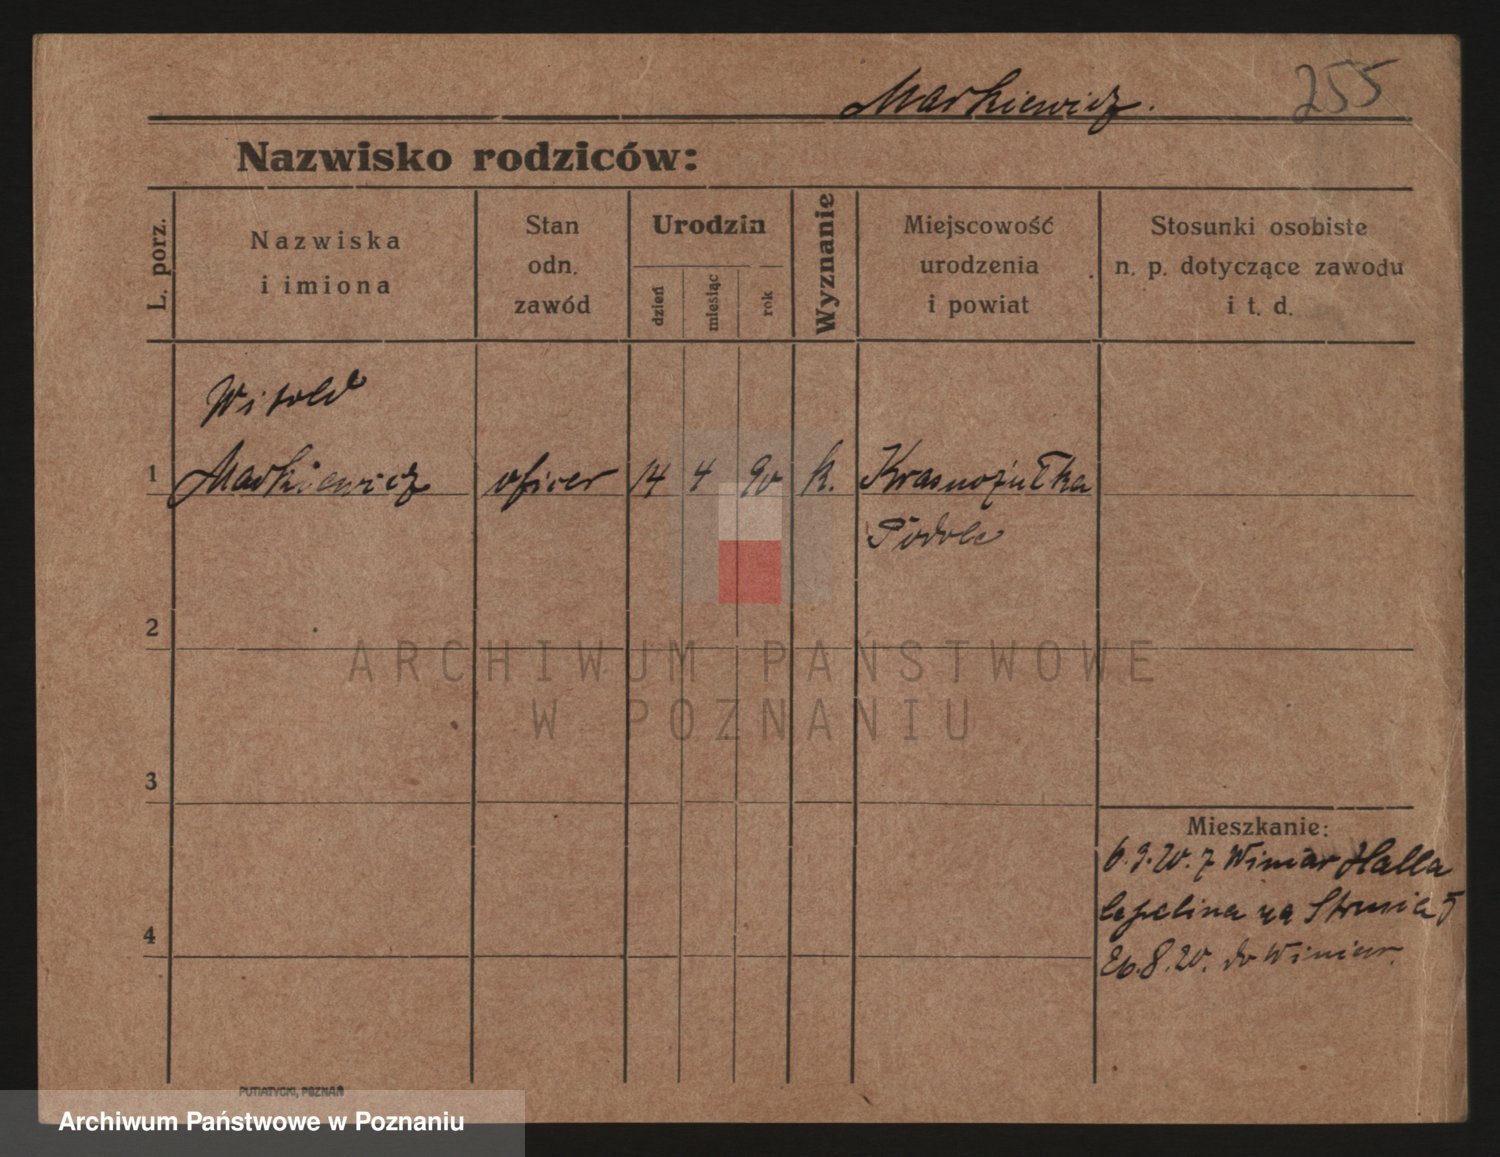 Markiewicz.
255
Nazwisko rodziców:
L. porz.
Nazwiska
i imiona
Stan
odn.
zawód
Urodzin
dzień
miesiąc
rok
Wyznanie
Miejscowość
urodzenia
i powiat
Stosunki osobiste
n. p. dotyczące zawodu
i t. d.
Witold
1 Markiewicz oficer 14 4 90 k. Krasnożułka
Podole
2
ARCHIWUM PAŃSTWOWE
W POZNANIU
3
Mieszkanie:
6.9.20. z Winiar Halla
na 5
4
26.8.20. do Winiar.
PUTIATYCKI, POZNAŃ
Archiwum Państwowe w Poznaniu